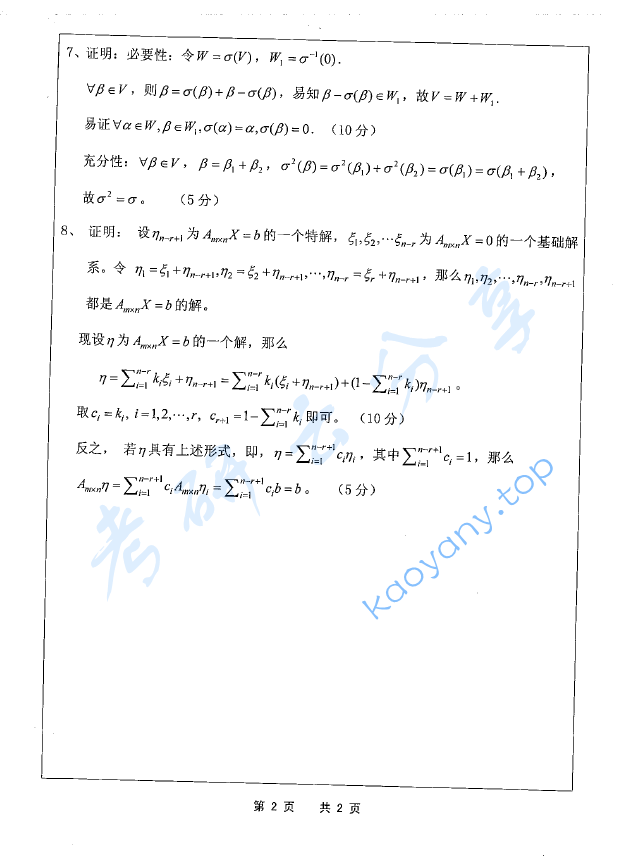 7、证明：必要性：令W = σ(V)，W₁ = σ⁻¹(0).
∀β ∈ V，则β = σ(β) + β − σ(β)，易知β − σ(β) ∈ W₁，故V = W + W₁.
易证∀α ∈ W, β ∈ W₁, σ(α) = α, σ(β) = 0. （10 分）
充分性：∀β ∈ V，β = β₁ + β₂，σ²(β) = σ²(β₁) + σ²(β₂) = σ(β₁) = σ(β₁ + β₂)，
故σ² = σ。 （5 分）
8、 证明： 设ηₙ₋ᵣ₊₁为AₘₓₙX = b的一个特解，ξ₁,ξ₂,⋯ξₙ₋ᵣ为AₘₓₙX = 0的一个基础解
系。令 η₁ = ξ₁ + ηₙ₋ᵣ₊₁, η₂ = ξ₂ + ηₙ₋ᵣ₊₁, ⋯, ηₙ₋ᵣ = ξᵣ + ηₙ₋ᵣ₊₁，那么η₁,η₂,⋯,ηₙ₋ᵣ,ηₙ₋ᵣ₊₁
都是AₘₓₙX = b的解。
现设η为AₘₓₙX = b的一个解，那么
η = ∑ᵢ₌₁ⁿ⁻ʳ kᵢξᵢ + ηₙ₋ᵣ₊₁ = ∑ᵢ₌₁ⁿ⁻ʳ kᵢ(ξᵢ + ηₙ₋ᵣ₊₁) + (1 − ∑ᵢ₌₁ⁿ⁻ʳ kᵢ)ηₙ₋ᵣ₊₁。
取cᵢ = kᵢ, i = 1,2,⋯,r, cᵣ₊₁ = 1 − ∑ᵢ₌₁ⁿ⁻ʳ kᵢ即可。 （10 分）
反之， 若η具有上述形式，即，η = ∑ᵢ₌₁ⁿ⁻ʳ⁺¹ cᵢηᵢ，其中∑ᵢ₌₁ⁿ⁻ʳ⁺¹ cᵢ = 1，那么
Aₘₓₙη = ∑ᵢ₌₁ⁿ⁻ʳ⁺¹ cᵢAₘₓₙηᵢ = ∑ᵢ₌₁ⁿ⁻ʳ⁺¹ cᵢb = b。 （5 分）
考研云分享
kaoyany.top
第 2 页 共 2 页